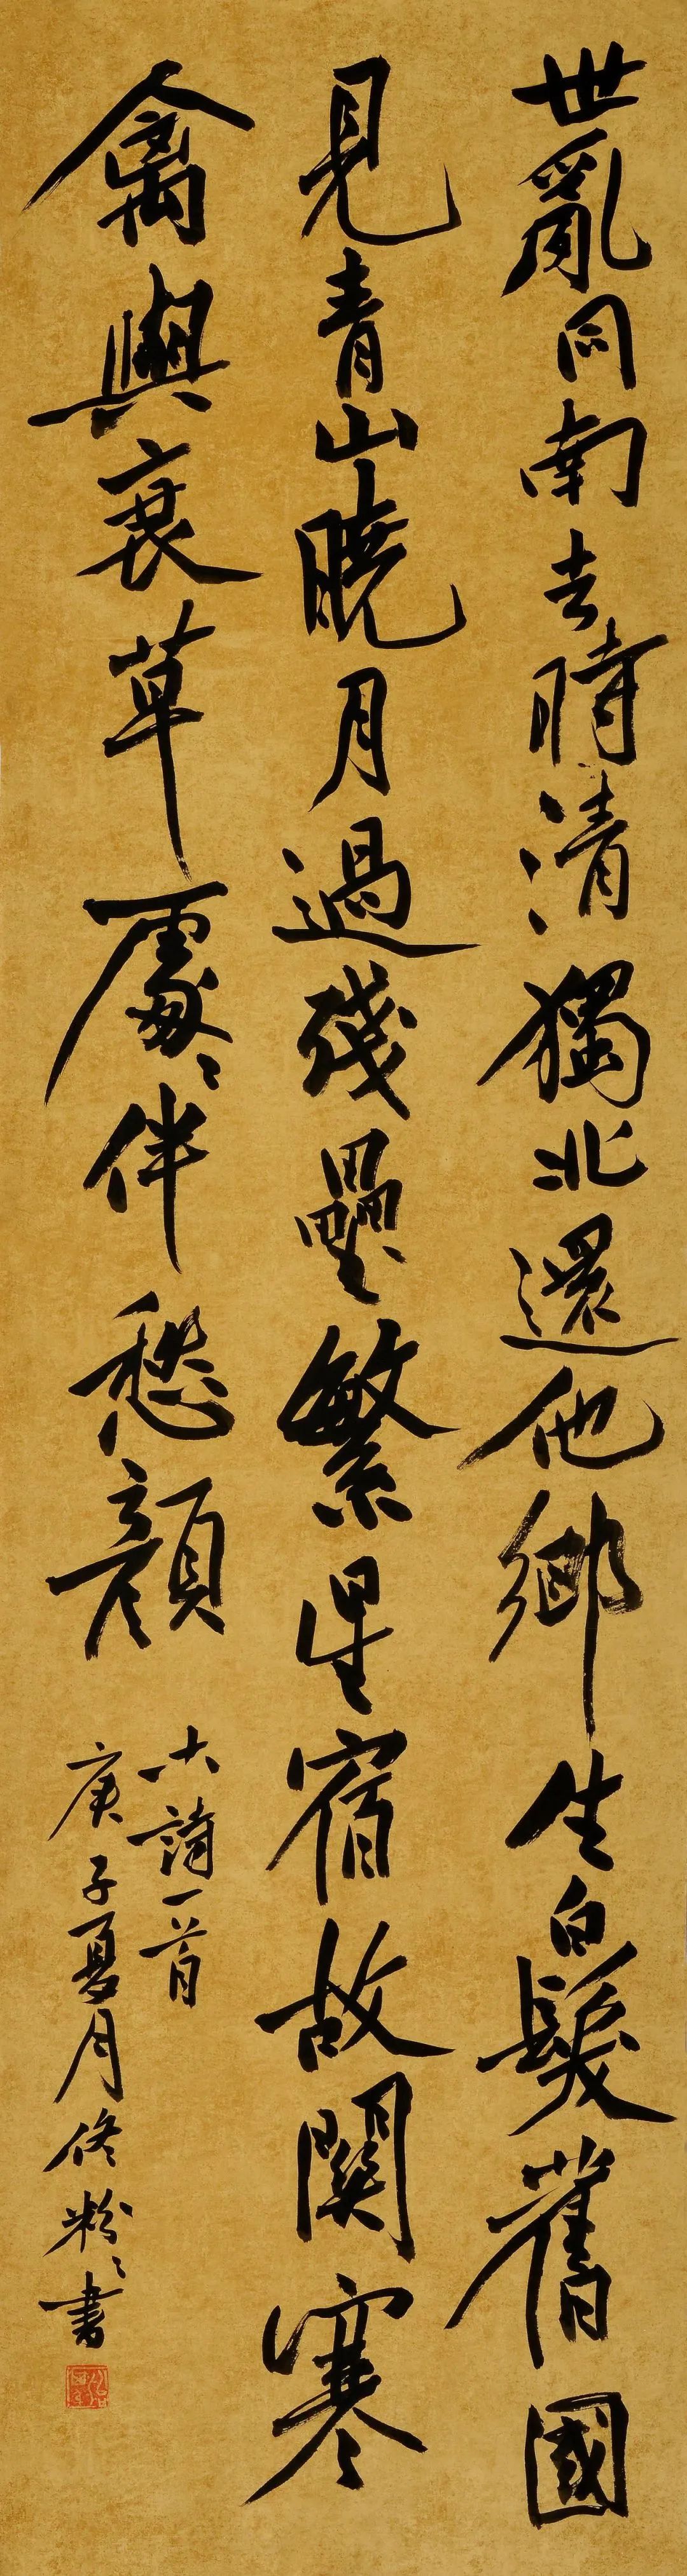 世亂同南去時清獨北還他鄉生白髮舊國
見青山曉月過殘壘繁星宿故關寒
禽與衰草處々伴愁顏
古詩一首
庚子夏月佟粉々書